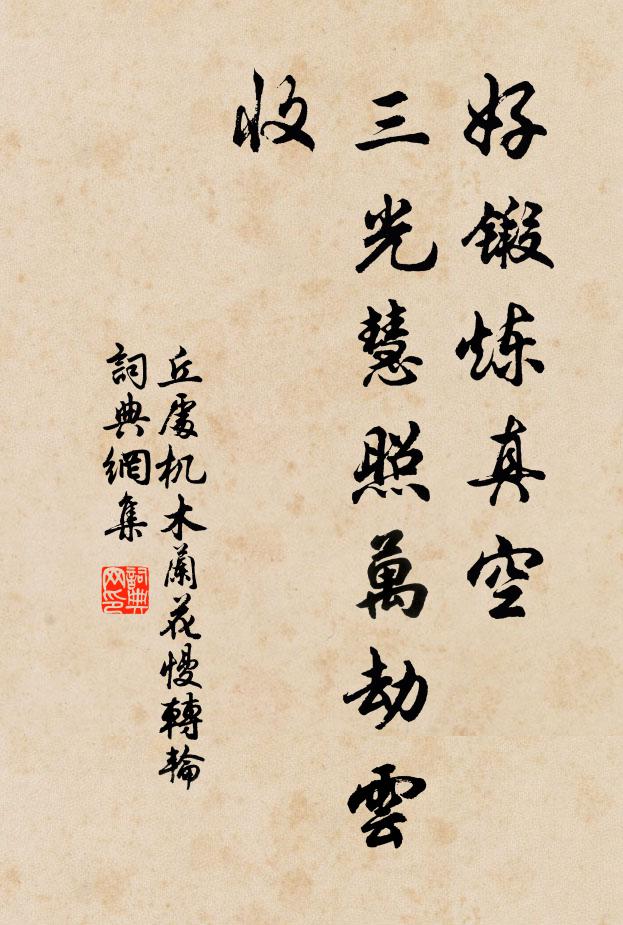 好锻炼真空
三光慧照萬劫雲
收
丘處机木蘭花慢轉輪
詞典網集
詞典
网印